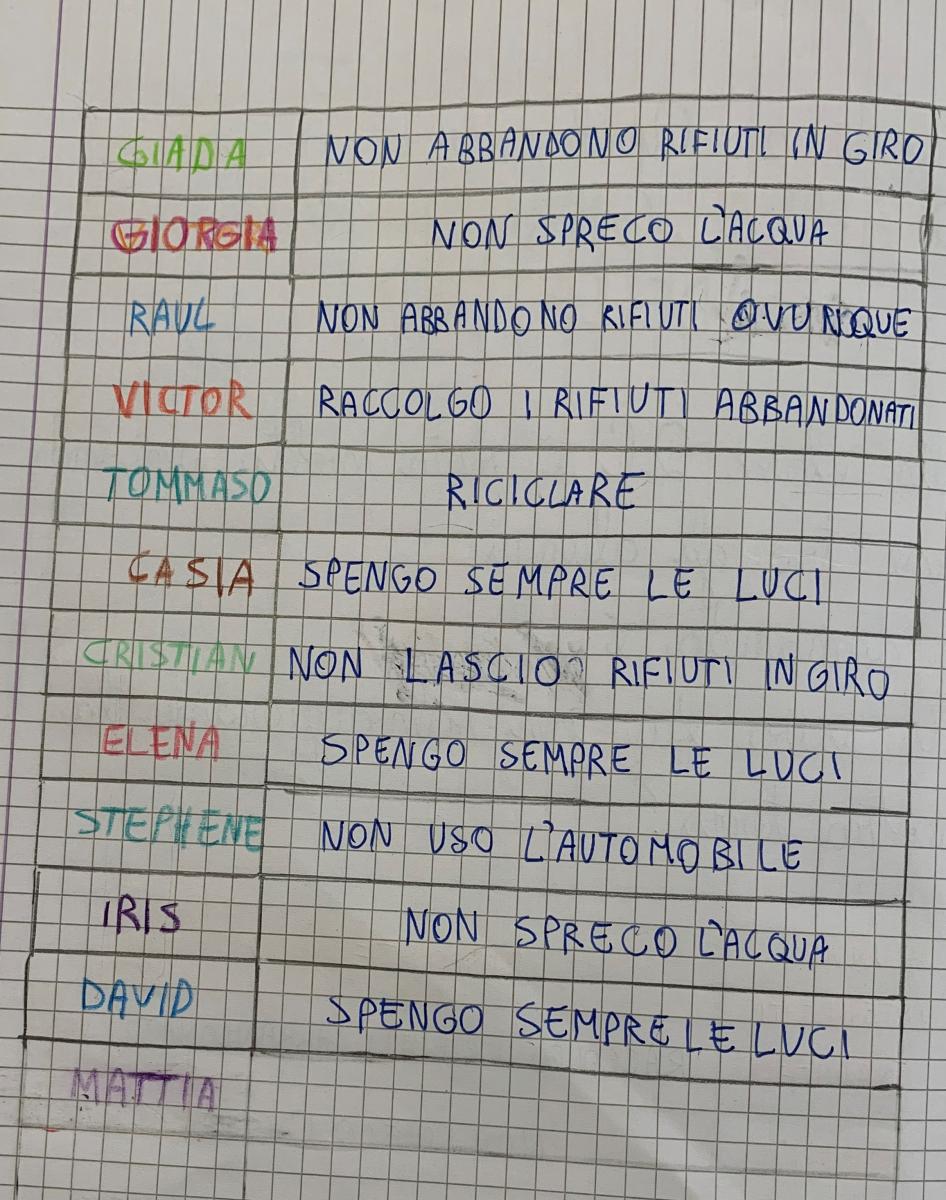 GIADA NON ABBANDONO RIFIUTI IN GIRO
GIORGIA NON SPRECO L'ACQUA
RAUL NON ABBANDONO RIFIUTI OVUNQUE
VICTOR RACCOLGO I RIFIUTI ABBANDONATI
TOMMASO RICICLARE
CASIA SPENGO SEMPRE LE LUCI
CRISTIAN NON LASCIO RIFIUTI IN GIRO
ELENA SPENGO SEMPRE LE LUCI
STEPHENE NON USO L'AUTOMOBILE
IRIS NON SPRECO L'ACQUA
DAVID SPENGO SEMPRE LE LUCI
MATTIA